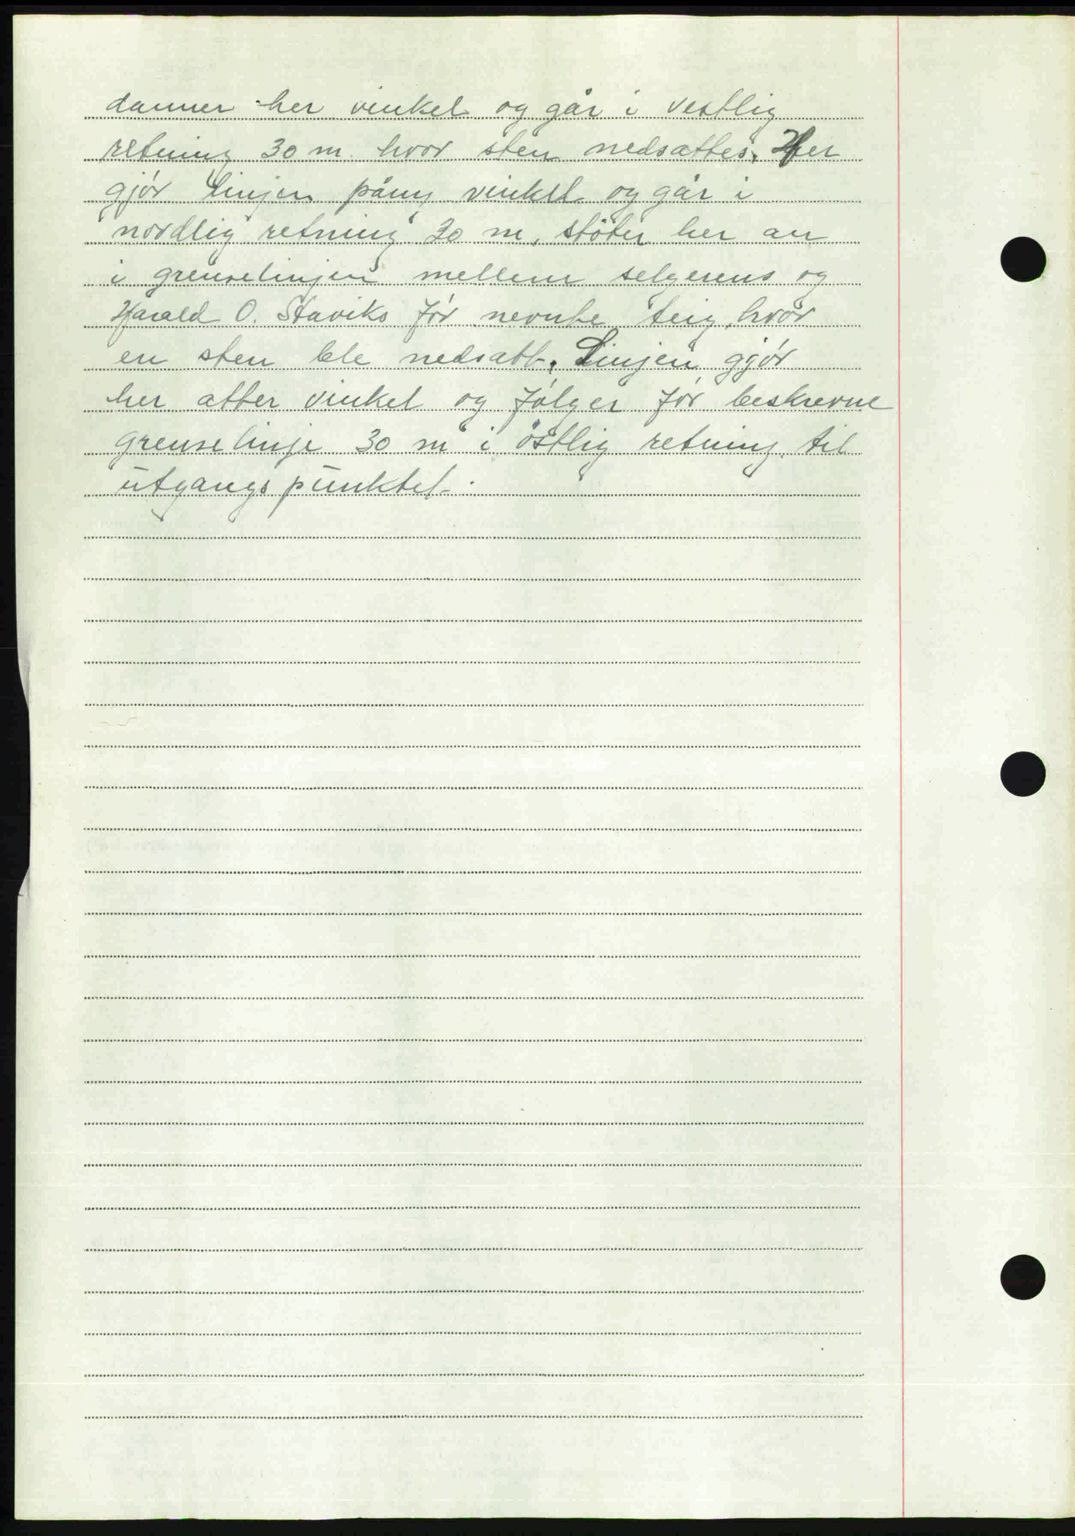 danner her vinkel og går i vestlig
retning 30 m hvor sten nedsattes. Her
gjør Linjen påny vinkel og går i
nordlig retning 20 m, støter her an
i grenselinjen mellem selgerens og
Harald O. Staviks før nevnte teig, hvor
en sten ble nedsatt. Linjen gjør
her atter vinkel og følger før beskrevne
grenselinje 30 m i østlig retning til
utgangspunktet.